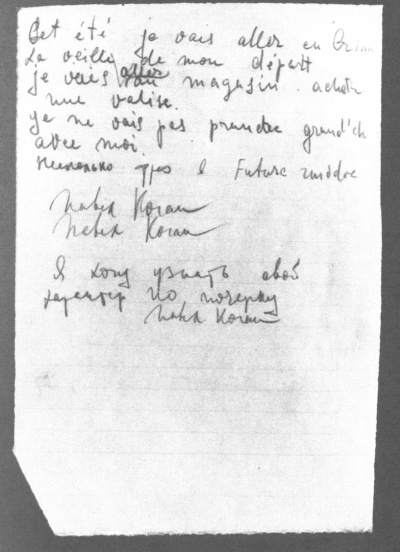 Cet été je vais aller en
La veille de mon départ
je vais aller au magasin acheter
une valise.
Je ne vais pas prendre grand'ch
avec moi.
Несколько фраз в Future immédiat
Павел Коган
Павел Коган
Я хочу узнать свой
характер по почерку
Павел Коган